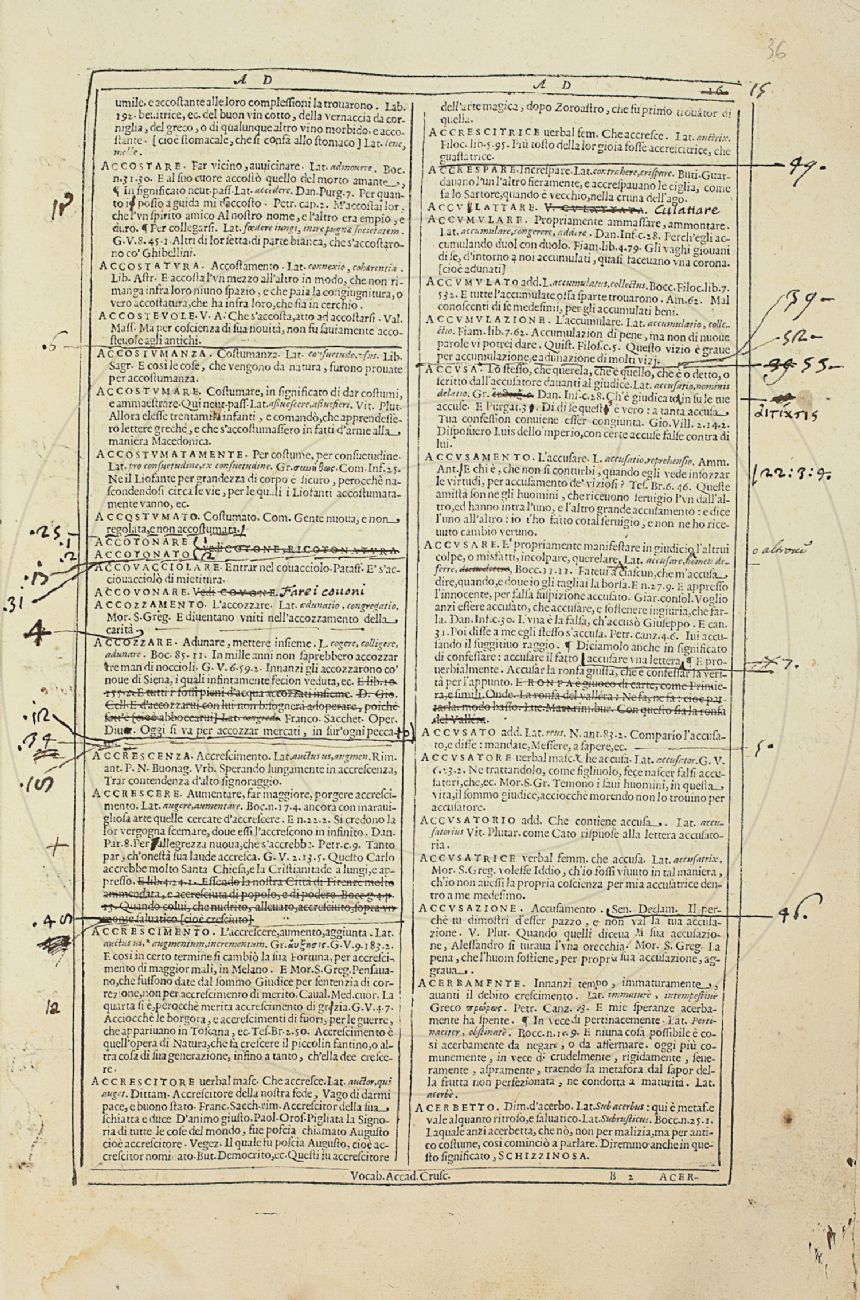 36
A D
A D
16
15
umile. e accoſtante alle loro compleſſioni la trouarono. Lab.
192. beuitrice, ec. del buon vin cotto, della vernaccia da cor-
niglia, del greco, o di qualunque altro vino morbido, e acco-
ſtante. [cioè ſtomacale, che ſi confà allo ſtomaco] Lat. lene,
molle.
ACCOSTARE. Far vicino, auuicinare. Lat. admouere. Boc.
n.31.30. E al ſuo cuore accoſtò quello del morto amante,
¶ in ſignificato neut. paſſ. Lat. accedere. Dan. Purg. 7. Per quan-
to i poſſo a guida mi t'accoſto. Petr. cap. 2. M'accoſtai lor,
che l'vn ſpirito amico Al noſtro nome, e l'altro era empio, e
duro. ¶ Per collegarſi. Lat. fœdere iungi,
G. V. 8. 45. 1. Altri di lor ſetta, di parte bianca, che s'accoſtaro-
no co' Ghibellini.
ACCOSTATVRA. Accoſtamento. Lat. connexio, cohærentia.
Lib. Aſtr. E accoſta l'vn mezzo all'altro in modo, che non ri-
manga infra loro niuno ſpazio, e che paia la congiugnitura, o
vero accoſtatura, che ha infra loro, che ſia in cerchio.
ACCOSTEVOLE. V. A. Che s'accoſta, atto ad accoſtarſi. Val.
Maſſ. Ma per coſcienza di ſua nouità, non fu ſauiamente acco-
ſteuole agli antichi.
ACCOSTVMANZA. Coſtumanza. Lat. conſuetudo, uſus. Lib.
Sagr. E così le coſe, che vengono da natura, furono prouate
per accoſtumanza.
ACCOSTVMARE. Coſtumare, in ſignificato di dar coſtumi,
e ammaeſtrare. Qui neut. paſſ. Lat. aſſueſcere, aſſuefieri. Vit. Plut.
Allora eleſſe trentamila infanti, e comandò, che apprendeſſe-
ro lettere greche, e che s'accoſtumaſſero in fatti d'arme alla
maniera Macedonica.
ACCOSTVMATAMENTE. Per coſtume, per conſuetudine.
Lat. pro conſuetudine, ex conſuetudine. Gr. Com. Inf. 25.
Ne il Liofante per grandezza di corpo è ſicuro, perocchè na-
ſcondendoſi circa le vie, per le quali i Liofanti accoſtumata-
mente vanno, ec.
ACCOSTVMATO. Coſtumato. Com. Gente nuoua, e non
regolata, e non accoſtumata.
ACCOTONARE
ACCOTONATO
vedi COTONE, RICOTONATVRA
ACCOVACCIOLARE. Entrar nel couacciolo. Pataff. E' s'ac-
ciouacciolò di mietitura.
ACCOVONARE. Vedi COVONE. Fare i couoni
ACCOZZAMENTO. L'accozzare. Lat. adunatio, congregatio,
Mor. S. Greg. E diuentano vniti nell'accozzamento della
carità.
ACCOZZARE. Adunare, mettere inſieme. L. cogere, colligere,
adunare. Boc. 85. 12. In mille anni non ſaprebbero accozzar
tre man di noccioli. G. V. 6. 59. 2. Innanzi gli accozzarono co'
noue di Siena, i quali infintamente fecion veduta, ec. E lib. 10.
155. 2. E tutti i foſſi pieni d'acqua accozzati inſieme. D. Gio.
Cell. E d'accozzarui con lui non biſognerà adoperare, poichè
ſarà [cioè abboccarui] Lat. congredi. Franco. Sacchet. Oper.
Diu. Oggi ſi va per accozzar mercati, in ſur'ogni pecca to
ACCRESCENZA. Accreſcimento. Lat. auctus us, augmen. Rim.
ant. P. N. Buonag. Vrb. Sperando lungamente in accreſcenza,
Trar contendenza d'alto ſignoraggio.
ACCRESCERE. Aumentare, far maggiore, porgere accreſci-
mento. Lat. augere, aumentare. Boc. n. 17. 4. ancora con maraui-
glioſa arte quelle cercate d'accreſcere. E n. 22. 2. Si credono la
lor vergogna ſcemare, doue eſſi l'accreſcono in infinito. Dan.
Par. 8. Per allegrezza nuoua, che s'accrebbe. Petr. c. 9. Tanto
par, ch'oneſtà ſua laude accreſca. G. V. 2. 13. 5. Queſto Carlo
accrebbe molto Santa Chieſa, e la Criſtianitade a lungi, e ap-
preſſo. E lib. 4. 2. 1. Eſſendo la noſtra Città di Firenze molto
ammendata, e accreſciuta di popolo, e di podere. Bocc. g. 4. p.
15. Quando colui, che nudrito, alleuato, accreſciuto, ſopra vn
monte ſaluatico [cioè creſciuto]
ACCRESCIMENTO. L'accreſcere, aumento, aggiunta. Lat.
auctus us, augmentum, incrementum. Gr. αὔξησις. G. V. 9. 183. 2.
E così in certo termine ſi cambiò la ſua Fortuna, per accreſci-
mento di maggior mali, in Melano. E Mor. S. Greg. Penſaua-
no, che fuſſono date dal ſommo Giudice per ſentenzia di cor-
rezione, non per accreſcimento di merito. Caual. Med. cuor. La
quarta ſi è, perocchè merita accreſcimento di grazia. G. V. 4. 7.
Acciocchè le borgora, e accreſcimenti di fuori, per le guerre,
che appariuano in Toſcana, ec. Teſ. Br. 2. 50. Accreſcimento è
quell'opera di Natura, che fa creſcere il piccolin fantino, o al-
tra coſa di ſua generazione, infino a tanto, ch'ella dee creſce-
re.
ACCRESCITORE uerbal maſc. Che accreſce. Lat. auctor, qui
auget. Dittam. Accreſcitore della noſtra fede, Vago di darmi
pace, e buono ſtato. Franc. Sacch. rim. Accreſcitor della ſua
ſchiatta e duce D'animo giuſto. Paol. Oroſ. Pigliata la Signo-
ria di tutte le coſe del mondo, fue poſcia chiamato Auguſto
cioè accreſcitore. Vegez. Il quale fu poſcia Auguſto, cioè ac-
creſcitor nominato. But. Democrito, ec. Queſti fu accreſcitore
dell'arte magica, dopo Zoroaſtro, che fu primo trouator di
quella.
ACCRESCITRICE uerbal fem. Che accreſce. Lat. auctrix.
Filoc. lib. 5. 95. Più toſto della lor gioia foſſe accreſcitrice, che
guaſtatrice.
ACCRESPARE. Increſpare. Lat. contrahere, criſpare. Buti. Guar-
dauano l'un l'altro fieramente, e accreſpauano le ciglia, come
fa lo Sartore, quando è vecchio, nella cruna dell'ago.
ACCVLATTARE. V. CVLATTATA. Culattare
ACCVMVLARE. Propriamente ammaſſare, ammontare.
Lat. accumulare, congerere, addere. Dan. Inf. c. 28. Perch'egli ac-
cumulando duol con duolo. Fiam. lib. 4. 79. Gli vaghi giouani
di ſe, d'intorno a noi accumulati, quaſi faceuano vna corona.
[cioè adunati]
ACCVMVLATO add. L. accumulatus, collectus. Bocc. Filoc. lib. 7.
532. E tutte l'accumulate oſſa ſparte trouarono. Am. 62. Mal
conoſcenti di ſe medeſimi, per gli accumulati beni.
ACCVMVLAZIONE. L'accumulare. Lat. accumulatio, colle-
ctio. Fiam. lib. 7. 62. Accumulazion di pene, ma non di nuoue
parole vi potrei dare. Quiſt. Filoſ. c. 5. Queſto vizio è graue
per accumulazione, e adunazione di molti vizj.
ACCVSA. Lo ſteſſo, che querela, che è quello, che è o detto, o
ſcritto dall'accuſatore dauanti al giudice. Lat. accuſatio, nominis
delatio. Gr. Dan. Inf. c. 28. Ch'è giudicato in ſu le tue
accuſe. E Purgat. 31. Di di ſe queſto è vero: a tanta accuſa
Tua confeſſion conuiene eſſer congiunta. Gio. Vill. 2. 14. 2.
Diſpoſuero Luis dello 'mperio, con certe accuſe falſe contra di
lui.
ACCVSAMENTO. L'accuſare. L. accuſatio, reprehenſio. Amm.
Ant. E chi è, che non ſi conturbi, quando egli vede inſozzar
le virtudi, per accuſamento de' vizioſi? Teſ. Br. 6. 46. Queſte
amiſtà ſon ne gli huomini, che riceuono ſeruigio l'vn dall'al-
tro, ed hanno intra l'uno, e l'altro grande accuſamento: e dice
l'uno all'altro: io t'ho fatto cotal ſeruigio, e non ne ho rice-
uuto cambio veruno.
ACCVSARE. E' propriamente manifeſtare in giudicio l'altrui
colpe, o misfatti, incolpare, querelare. Lat. accuſare, nomen de-
ferre, Bocc. 11. 11. Fateui a ciaſcun, che m'accuſa
dire, quando, e doue io gli tagliai la borſa. E n. 27. 9. E appreſſo
l'innocente, per falſa ſuſpizione accuſato. Giar. conſol. Voglio
anzi eſſere accuſato, che accuſare, e ſoſtenere ingiuria, che far-
la. Dan. Inf. c. 30. L'vna è la falſa, ch'accusò Giuſeppo. E can.
31. Poi diſſe a me egli ſteſſo s'accuſa. Petr. canz. 4. 6. Iui accu-
ſando il fuggitiuo raggio. ¶ Diciamolo anche in ſignificato
di confeſſare: accuſare il fatto [accuſare vna lettera] ¶ E pro-
uerbialmente. Accuſar la ronfa giuſta, che è confeſſar la veri-
tà per l'appunto. E RONFA è giuoco di carte, come Primie-
ra, e ſimili. Onde. La ronfa del vallera: Ne fa, ne fa: cioè pat-
tarla: modo baſſo. Luc. Mart. rim. bur. Con queſto ſia la ronfa
del Vallera.
ACCVSATO add. Lat. reus. N. ant. 83. 2. Compario l'accuſa-
to, e diſſe: mandate, Meſſere, a ſapere, ec.
ACCVSATORE uerbal maſc. Che accuſa. Lat. accuſator. G. V.
6. 23. 2. Ne trattandolo, come figliuolo, fece naſcer falſi accu-
ſatori, che, ec. Mor. S. Gr. Temono i ſaui huomini, in queſta
vita, il ſommo giudice, acciocche morendo non lo trouino per
accuſatore.
ACCVSATORIO add. Che contiene accuſa. Lat. accu-
ſatorius Vit. Plutar. come Cato riſpuoſe alla lettera accuſato-
ria.
ACCVSATRICE verbal femm. che accuſa. Lat. accuſatrix.
Mor. S. Greg. voleſſe Iddio, ch'io foſſi viuuto in tal maniera,
ch'io non aueſſi la propria coſcienza per mia accuſatrice den-
tro a me medeſimo.
ACCVSAZIONE. Accuſamento. Sen. Declam. Il per-
chè tu dimoſtri d'eſſer pazzo, e non val la tua accuſa-
zione. V. Plut. Quando quelli diceua la ſua accuſazio-
ne, Aleſſandro ſi turaua l'vna orecchia. Mor. S. Greg. La
pena, che l'huom ſoſtiene, per propria ſua accuſazione, ag-
graua.
ACERBAMENTE. Innanzi tempo, immaturamente,
auanti il debito creſcimento. Lat. immaturè, intempeſtiuè
Greco Petr. Canz. 43. E mie ſperanze acerba-
mente ha ſpente. ¶ In vece di pertinacemente. Lat. Perti-
naciter, obſtinatè. Bocc. n. 16. 9. E niuna coſa poſſibile è co-
sì acerbamente da negare, o da affermare. oggi più co-
munemente, in vece di crudelmente, rigidamente, ſeue-
ramente, aſpramente, traendo la metafora dal ſapor del-
la frutta non perfezionata, ne condotta a maturità. Lat.
acerbè.
ACERBETTO. Dim. d'acerbo. Lat. Subacerbus: qui è metaf. e
vale alquanto ritroſo, e ſaluatico. Lat. Subruſticus. Bocc. n. 25. 1.
La quale anzi acerbetta, che nò, non per malizia, ma per anti-
co coſtume, così cominciò a parlare. Diremmo anche in que-
ſto ſignificato, SCHIZZINOSA.
Vocab. Accad. Cruſc.
B 2
ACER-
18
.6
.25
.1
.2
.13
.31
4
.12
.39
.15
+
.48
12
49.
39
52
53
122:3:9.
7.
5.
46.